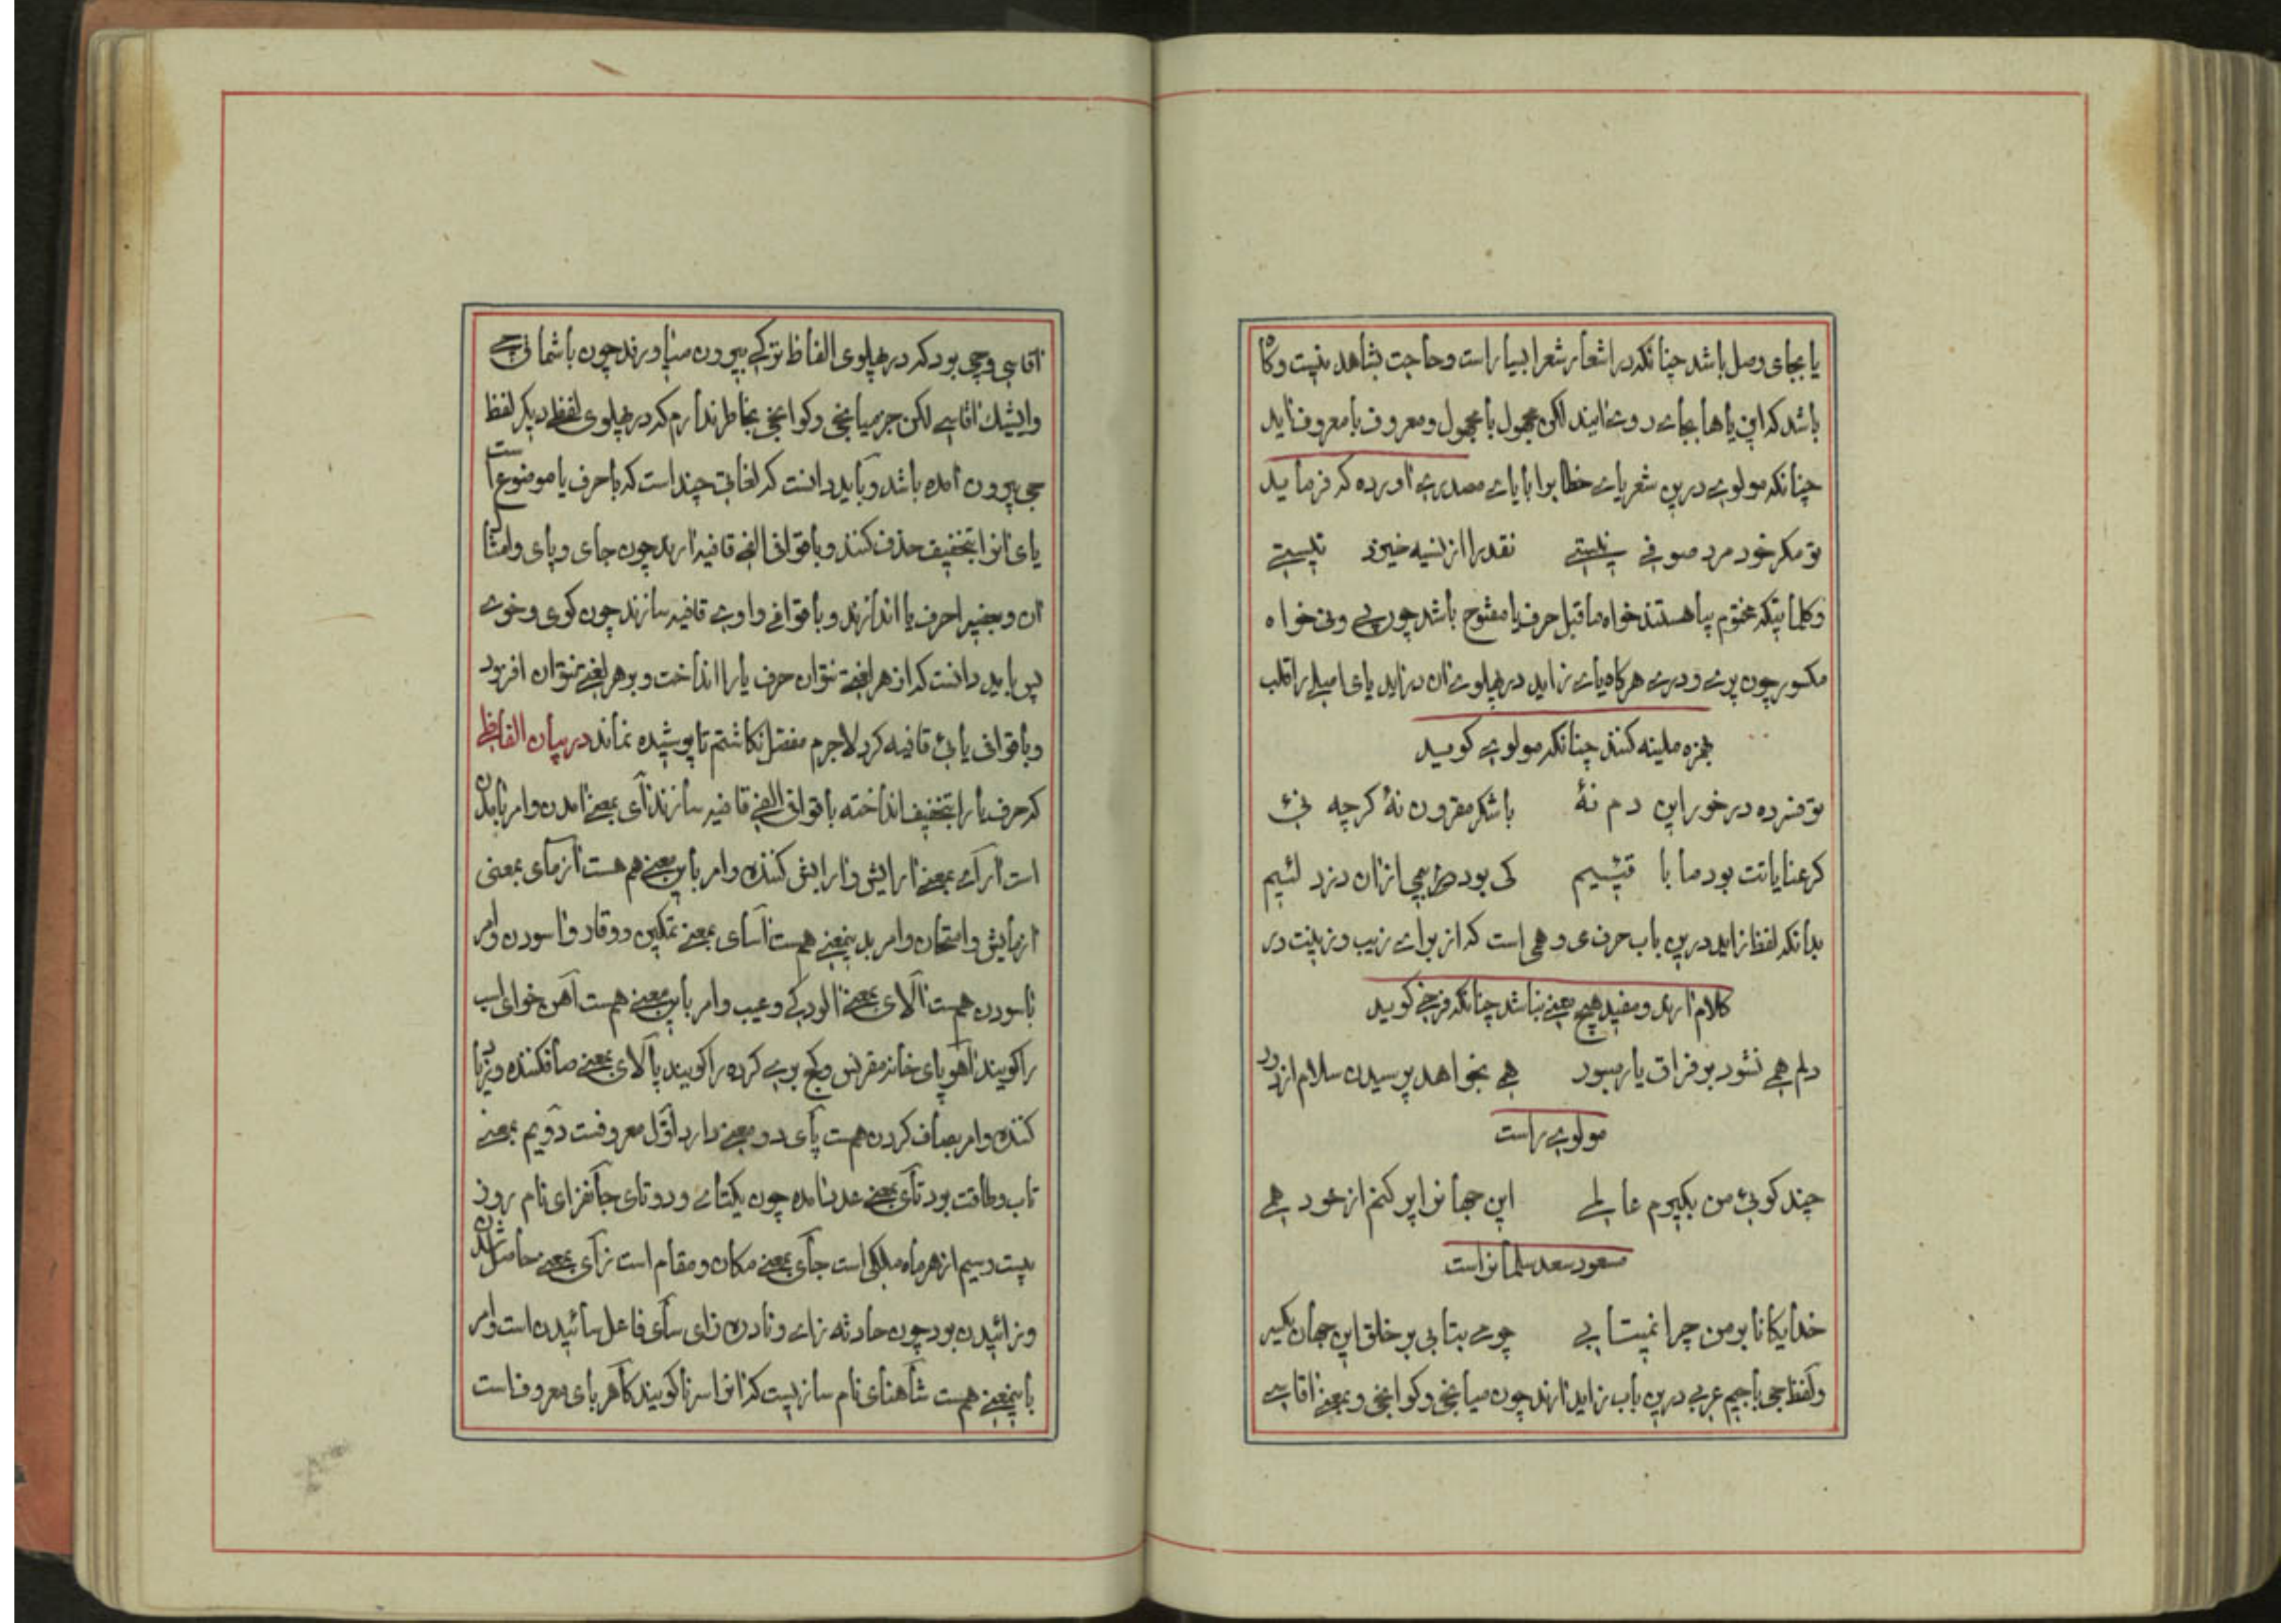 یا بجای وصل باشد چنانکه در اشعار شعرا بسیار است و حاجت بشاهد نیست و گاه
باشد که این یاها بجای روی نمایند لکن مجهول با مجهول و معروف با معروف آید
چنانکه مولوی درین شعر یای خطاب را با یای مصدری آورده که فرماید
تو مگر خود مرد صوفی نیستی    نقد را از نسیه خیزد نیستی
و کلماتیکه مختوم بیا هستند خواه ماقبل حرف یا مفتوح باشد چون پی و نی خواه
مکسور چون پری و دری هرگاه یای زاید در پهلوی آن در آید یای اصلی را قلب
بهمزه ملینه کنند چنانکه مولوی گوید
تو فسرده درخور این دم نهٔ    با شکر مقرون نهٔ گرچه نئی
گر عنایاتت بود ما با قئیم    کی بود هیچی ازان دزد لئیم
بدانکه لفظ زاید درین باب حرف ی و همی است که از برای زیب و زینت در
کلام آرند و مفید هیچ معنی نباشد چنانکه فرخی گوید
دلم همی نشود بر فراق یار صبور    همی بخواهد پرسیدن سلام از دور
مولوی راست
چند گوئی من بگیرم عالمی    این جهانرا پر کنم از خود همی
مسعود سعد سلمانراست
خدایگانا بر من چرا نمیتابی    چو می بتابی بر خلق این جهان یکسر
و لفظ جی با جیم عربی درین باب زاید آرند چون میانجی و گوانجی و بمعنی آقاسی
آقاسی و جی بود که در پهلوی الفاظ ترکی بیرون میاورند چون باشماقچی
و ایشیک آقاسی لکن جز میانجی و گوانجی بخاطر ندارم که در پهلوی لفظ دیگر لفظ
جی بیرون آمده باشد و باید دانست که لغاتی چند است که با حرف یا موضوع است
یای آنرا بتخفیف حذف کنند و با قوافی الفی قافیه آرند چون جای و پای و امثال
آن و بعضی را حرف یا اندازند و با قوافی واوی قافیه سازند چون کوی و خوی
پس باید دانست که از هر لغتی نتوان حرف یا را انداخت و بر هر لغتی نتوان افزود
و با قوافی یائی قافیه کرد لاجرم مفصل نگاشتم تا پوشیده نماند در بیان الفاظی
که حرف یا را بتخفیف انداخته با قوافی الفی قافیه سازند آی بمعنی آمدن و امر بآمدن
است آرای بمعنی آرایش و آرایش کننده و امر باین معنی هم هست آزمای بمعنی
آزمایش و امتحان و امر بدینمعنی هست آسای بمعنی تمکین و وقار و آسودن و امر
بآسودن هست آلای بمعنی آلودگی و عیب و امر باین معنی هست آهن خوای اسب
را گویند آهوپای خانه مقرنس و گچ بری کرده را گویند پالای بمعنی صاف کننده و زیاد
کننده و امر بصاف کردن هست پای دو معنی دارد اول معروفست دویم بمعنی
تاب و طاقت بود تای بمعنی عدد آمده چون یکتای و دو تای جانفزای نام روز
بیست و سیم از هر ماه ملکی است جای بمعنی مکان و مقام است زای بمعنی حاصل شدن
و زائیدن بود چون حادثه زای و نادره زای سای فاعل سائیدن است و امر
باینمعنی هست شاهنای نام سازیست که آنرا سرنا گویند کاهربای معروفست